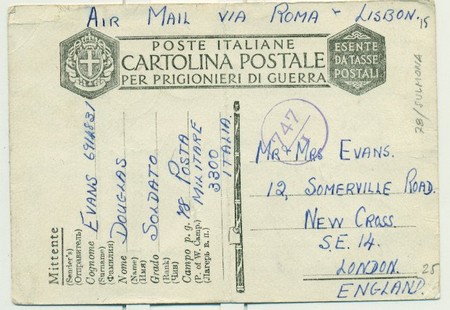 AIR MAIL VIA ROMA & LISBON.
15
POSTE ITALIANE
CARTOLINA POSTALE
PER PRIGIONIERI DI GUERRA
ESENTE
DA TASSE
POSTALI
78/SULMONA
747
MR & MRS EVANS.
12, SOMERVILLE ROAD.
NEW CROSS.
S.E. 14.
LONDON.
25
ENGLAND.
Mittente
(Sender's)
(Отправитель)
Cognome EVANS 6914831
(Surname)
(Фамилия)
Nome DOUGLAS
(Name)
(Имя)
Grado SOLDATO
(Rank)
(Чин)
Campo p. g. 78 POSTA
(P. of W. Camp.)
(Лагерь в. п.)
MILITARE
3300
ITALIA.